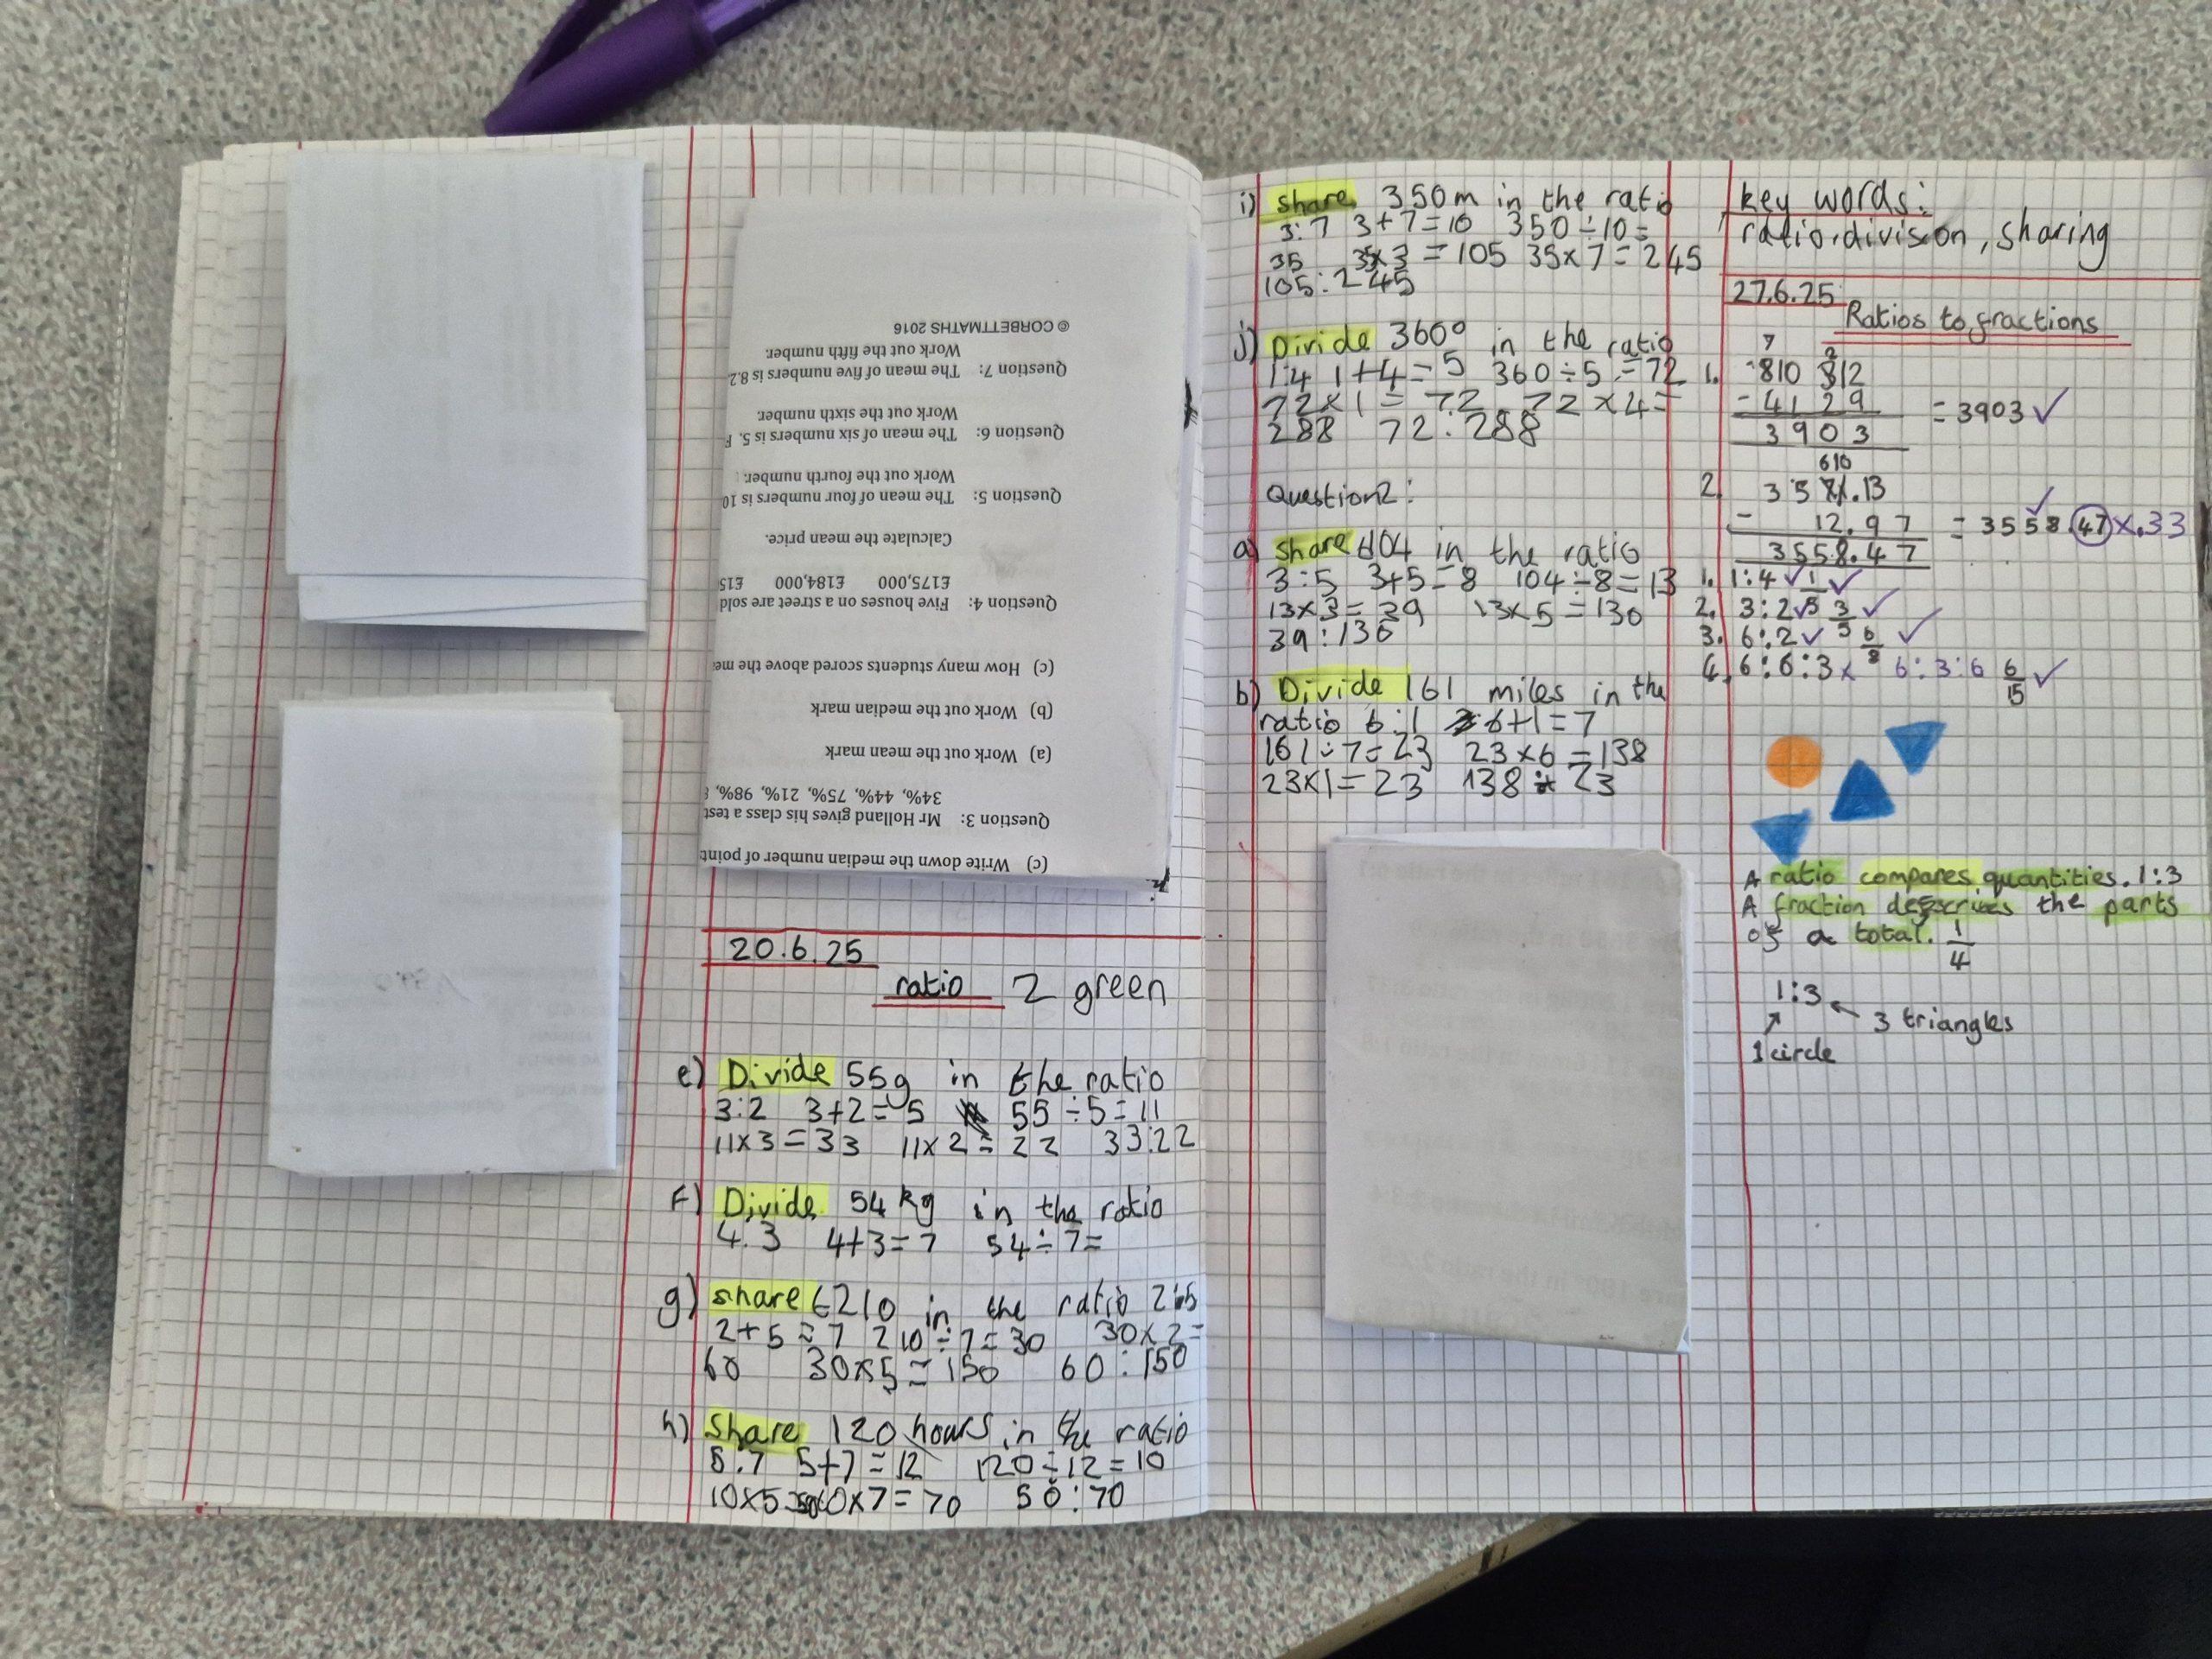 © CORBETTMATHS 2016
Work out the fifth number.
Question 7: The mean of five numbers is 8.2.
Work out the sixth number.
Question 6: The mean of six numbers is 5.
Work out the fourth number.
Question 5: The mean of four numbers is 10
Calculate the mean price.
£175,000 £184,000 £15
Question 4: Five houses on a street are sold
(c) How many students scored above the me
(b) Work out the median mark
(a) Work out the mean mark
34%, 44%, 75%, 21%, 98%,
Question 3: Mr Holland gives his class a test
(c) Write down the median number of point
20.6.25
ratio 2 green
e) Divide 55g in the ratio
3:2 3+2=5 55÷5=11
11x3=33 11x2=22 33:22
f) Divide 54kg in the ratio
4.3 4+3=7 54÷7=
g) share £210 in the ratio 2:5
2+5=7 210÷7=30 30x2=
60 30x5=150 60:150
h) Share 120 hours in the ratio
5.7 5+7=12 120÷12=10
10x5 10x7=70 50:70
i) share 350m in the ratio
3:7 3+7=10 350÷10=
35 35x3=105 35x7=245
105:245
j) Divide 360° in the ratio
1:4 1+4=5 360÷5=72
72x1=72 72x4=
288 72:288
Question2:
a) share £104 in the ratio
3:5 3+5=8 104÷8=13
13x3=39 13x5=130
39:130
b) Divide 161 miles in the
ratio 6:1 6+1=7
161÷7=23 23x6=138
23x1=23 138:23
key words:
ratio, division, sharing
27.6.25
Ratios to fractions
7 2
1. 810 312
- 4129 = 3903 ✓
3903
610
2. 3571.13
- 12.97 = 3558.47 x.33
3558.47
1. 1:4 ✓ 1/5 ✓
2. 3:2 ✓ 3/5 ✓
3. 6:2 ✓ 6/8 ✓
4. 6:6:3 x 6:3:6 6/15 ✓
A ratio compares quantities. 1:3
A fraction describes the parts
of a total. 1/4
1:3
3 triangles
1 circle